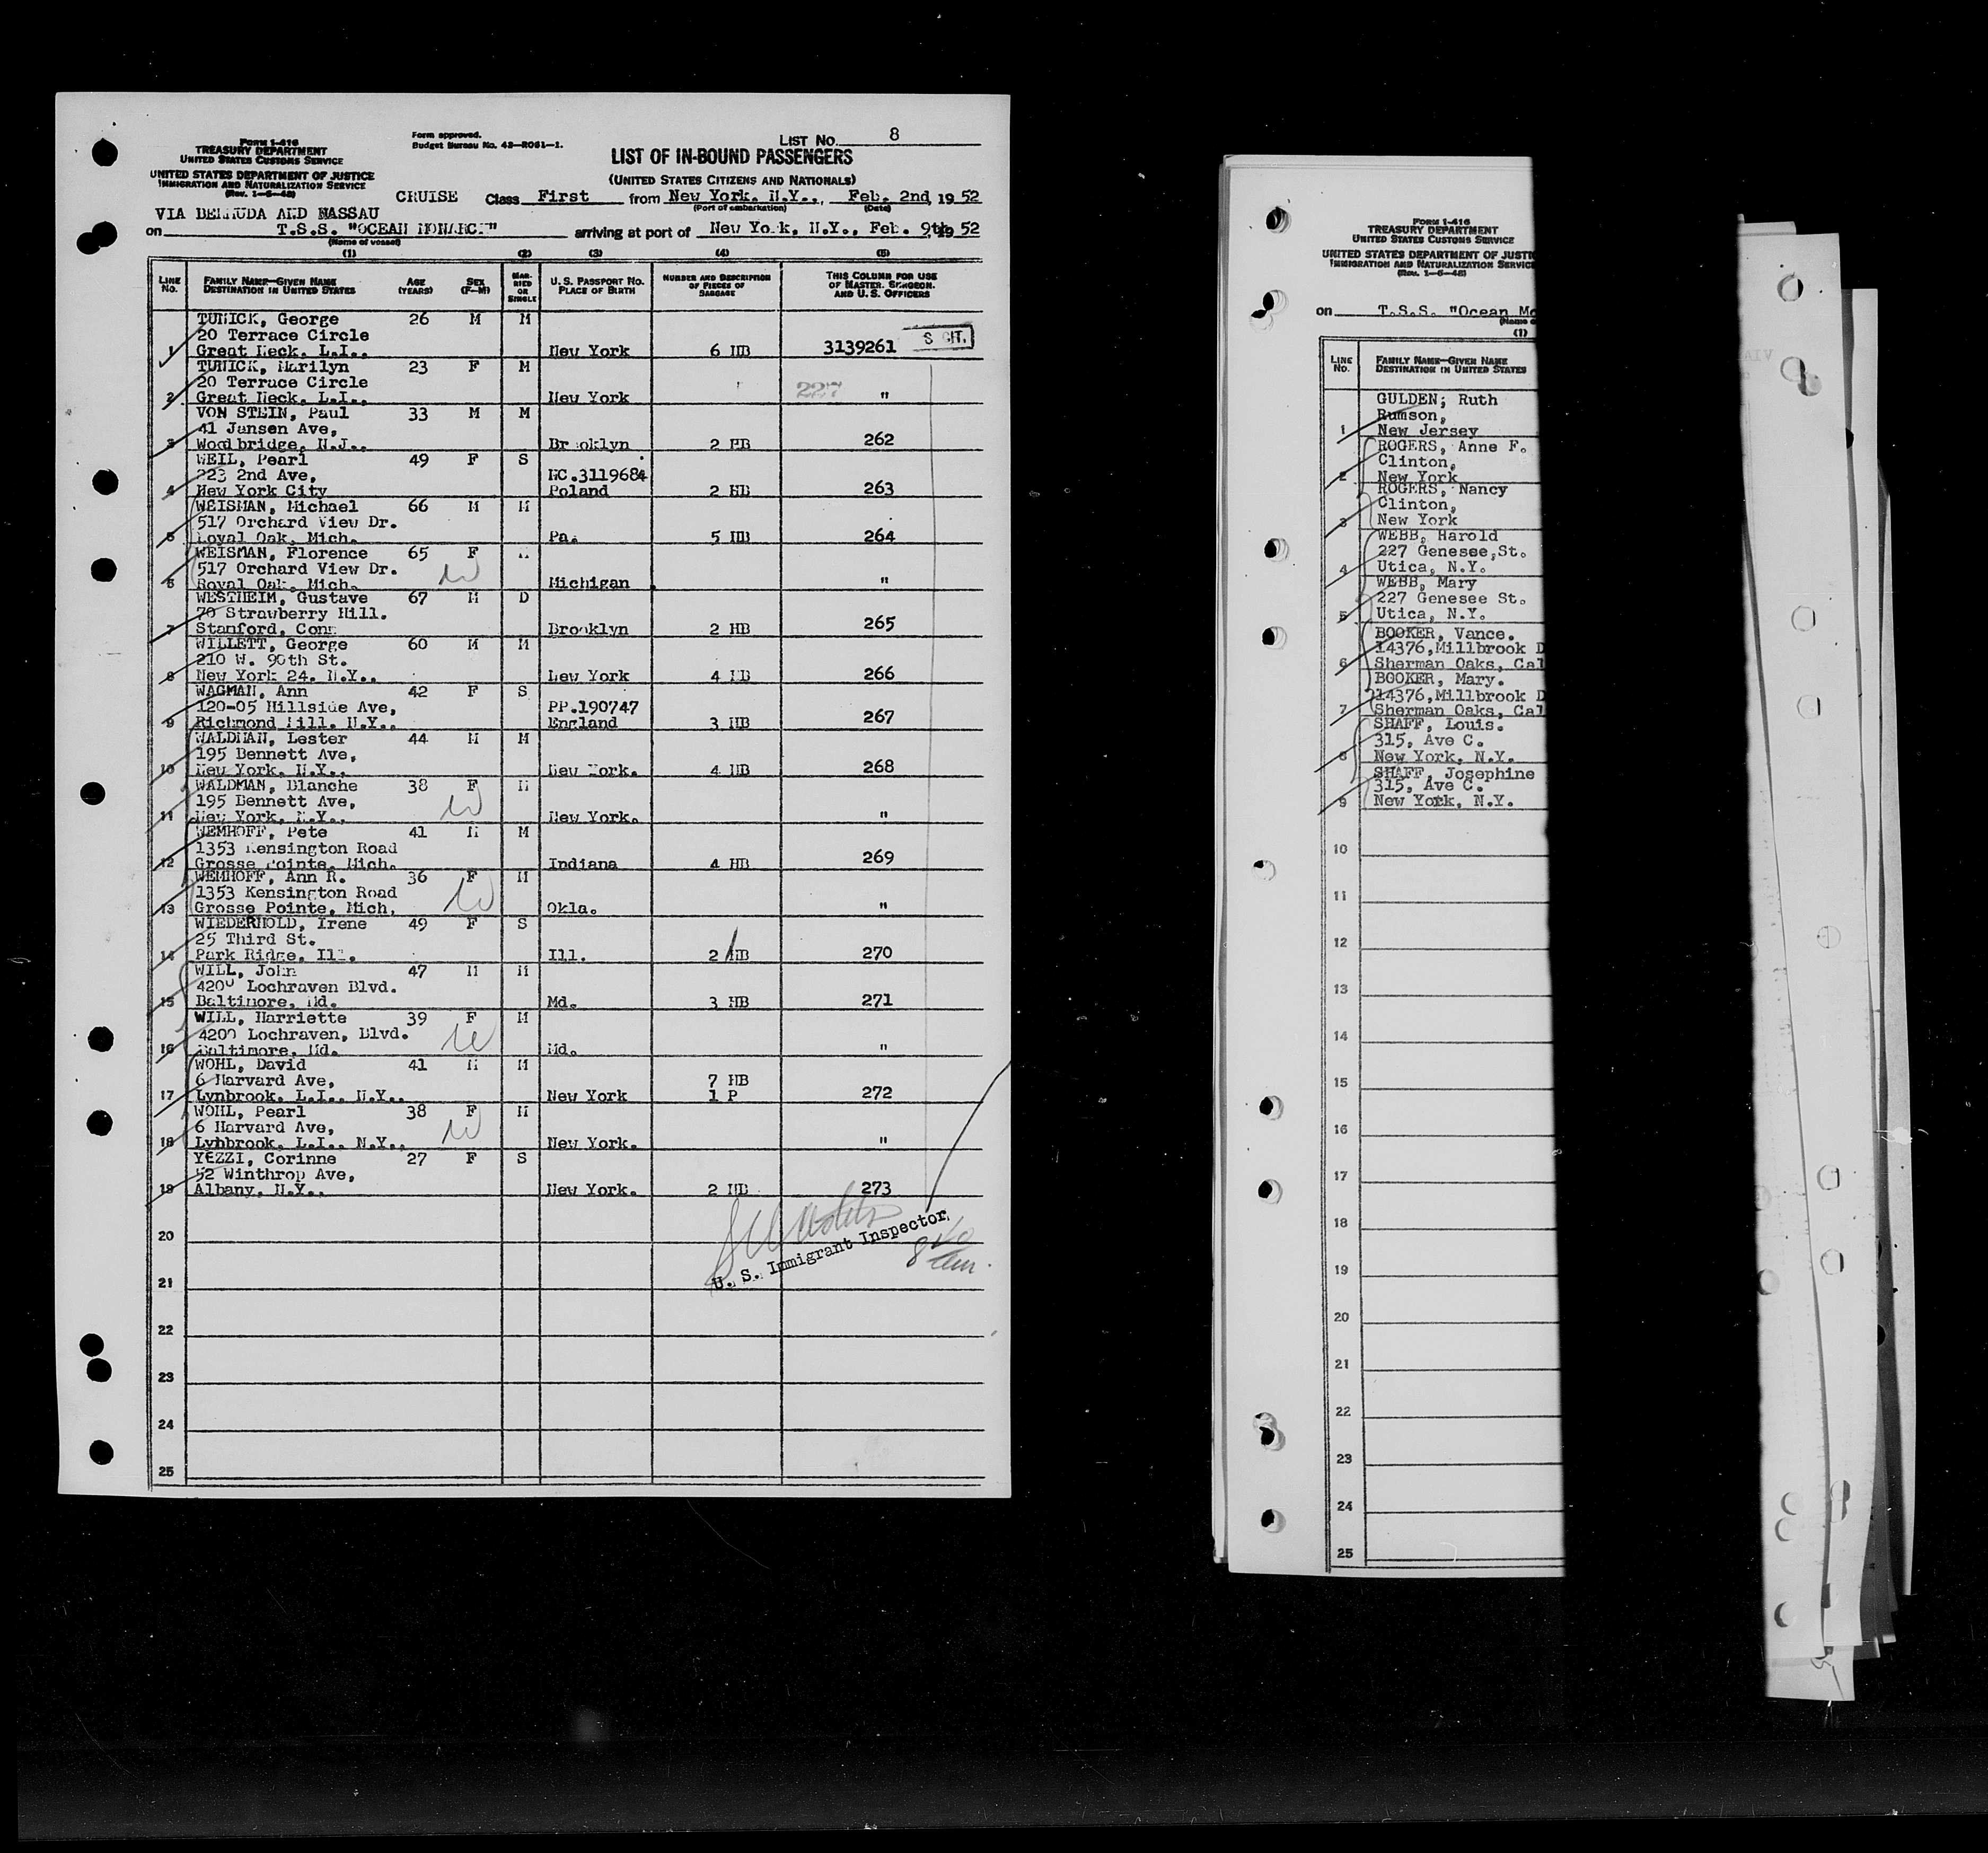 Form I-416
TREASURY DEPARTMENT
UNITED STATES CUSTOMS SERVICE
UNITED STATES DEPARTMENT OF JUSTICE
IMMIGRATION AND NATURALIZATION SERVICE
(Rev. 1-6-48)
Form approved.
Budget Bureau No. 43-R061-1.
LIST No. 8
LIST OF IN-BOUND PASSENGERS
(UNITED STATES CITIZENS AND NATIONALS)
CRUISE Class First from New York, N.Y., Feb. 2nd, 19 52
(Port of embarkation) (Date)
VIA BERMUDA AND NASSAU
on T.S.S. "OCEAN MONARCH" arriving at port of New York, N.Y., Feb. 9th 19 52
(Name of vessel)
(1) (2) (3) (4) (5)
LINE No. FAMILY NAME—GIVEN NAME DESTINATION IN UNITED STATES AGE (YEARS) SEX (F-M) MARRIED OR SINGLE U.S. PASSPORT No. PLACE OF BIRTH NUMBER AND DESCRIPTION OF PIECES OF BAGGAGE THIS COLUMN FOR USE OF MASTER, SURGEON, AND U.S. OFFICERS
TUNICK, George 26 M M
20 Terrace Circle
1 Great Neck. L.I., New York 6 HB 3139261
TUNICK, Marilyn 23 F M
20 Terrace Circle
2 Great Neck. L.I., New York 227 "
VON STEIN, Paul 33 M M
41 Jansen Ave,
3 Woodbridge, N.J., Brooklyn 2 HB 262
WEIL, Pearl 49 F S
223 2nd Ave, NC.3119684
4 New York City Poland 2 HB 263
WEISMAN, Michael 66 M M
517 Orchard View Dr.
5 Royal Oak, Mich. Pa. 5 HB 264
WEISMAN, Florence 65 F M
517 Orchard View Dr.
6 Royal Oak, Mich. Michigan "
WESTHEIM, Gustave 67 M D
70 Strawberry Hill.
7 Stanford, Conn Brooklyn 2 HB 265
WILLETT, George 60 M M
210 W. 90th St.
8 New York 24, N.Y., New York 4 HB 266
WAGMAN, Ann 42 F S
120-05 Hillside Ave, PP.190747
9 Richmond Hill, N.Y., England 3 HB 267
WALDMAN, Lester 44 M M
195 Bennett Ave,
10 New York, N.Y., New York. 4 HB 268
WALDMAN, Blanche 38 F M
195 Bennett Ave,
11 New York, N.Y., New York. "
WEMHOFF, Pete 41 M M
1353 Kensington Road
12 Grosse Pointe, Mich. Indiana 4 HB 269
WEMHOFF, Ann R. 36 F M
1353 Kensington Road
13 Grosse Pointe, Mich. Okla. "
WIEDERHOLD, Irene 49 F S
25 Third St.
14 Park Ridge, Ill. Ill. 2 HB 270
WILL, John 47 M M
4200 Lochraven Blvd.
15 Baltimore, Md. Md. 3 HB 271
WILL, Harriette 39 F M
4200 Lochraven, Blvd.
16 Baltimore, Md. Md. "
WOHL, David 41 M M
6 Harvard Ave, 7 HB
17 Lynbrook, L.I., N.Y., New York 1 P 272
WOHL, Pearl 38 F M
6 Harvard Ave,
18 Lybbrook, L.I., N.Y., New York. "
YEZZI, Corinne 27 F S
52 Winthrop Ave,
19 Albany, N.Y., New York. 2 HB 273
20
U. S. Immigrant Inspector
21
22
23
24
25
Form I-416
TREASURY DEPARTMENT
UNITED STATES CUSTOMS SERVICE
UNITED STATES DEPARTMENT OF JUSTI
IMMIGRATION AND NATURALIZATION SERVICE
(Rev. 1-6-48)
on T.S.S. "Ocean Mo
(Name o
(1)
LINE No. FAMILY NAME—GIVEN NAME DESTINATION IN UNITED STATES
GULDEN; Ruth
Rumson,
1 New Jersey
ROGERS, Anne F.
Clinton,
2 New York
ROGERS, Nancy
Clinton,
3 New York
WEBB, Harold
227 Genesee,St.
4 Utica, N.Y.
WEBB, Mary
227 Genesee St.
5 Utica, N.Y.
BOOKER, Vance.
14376,Millbrook D
6 Sherman Oaks, Cal
BOOKER, Mary.
14376,Millbrook D
7 Sherman Oaks, Cal
SHAFF, Louis.
315, Ave C.
8 New York, N.Y.
SHAFF, Josephine
315, Ave C.
9 New York, N.Y.
10
11
12
13
14
15
16
17
18
19
20
21
22
23
24
25